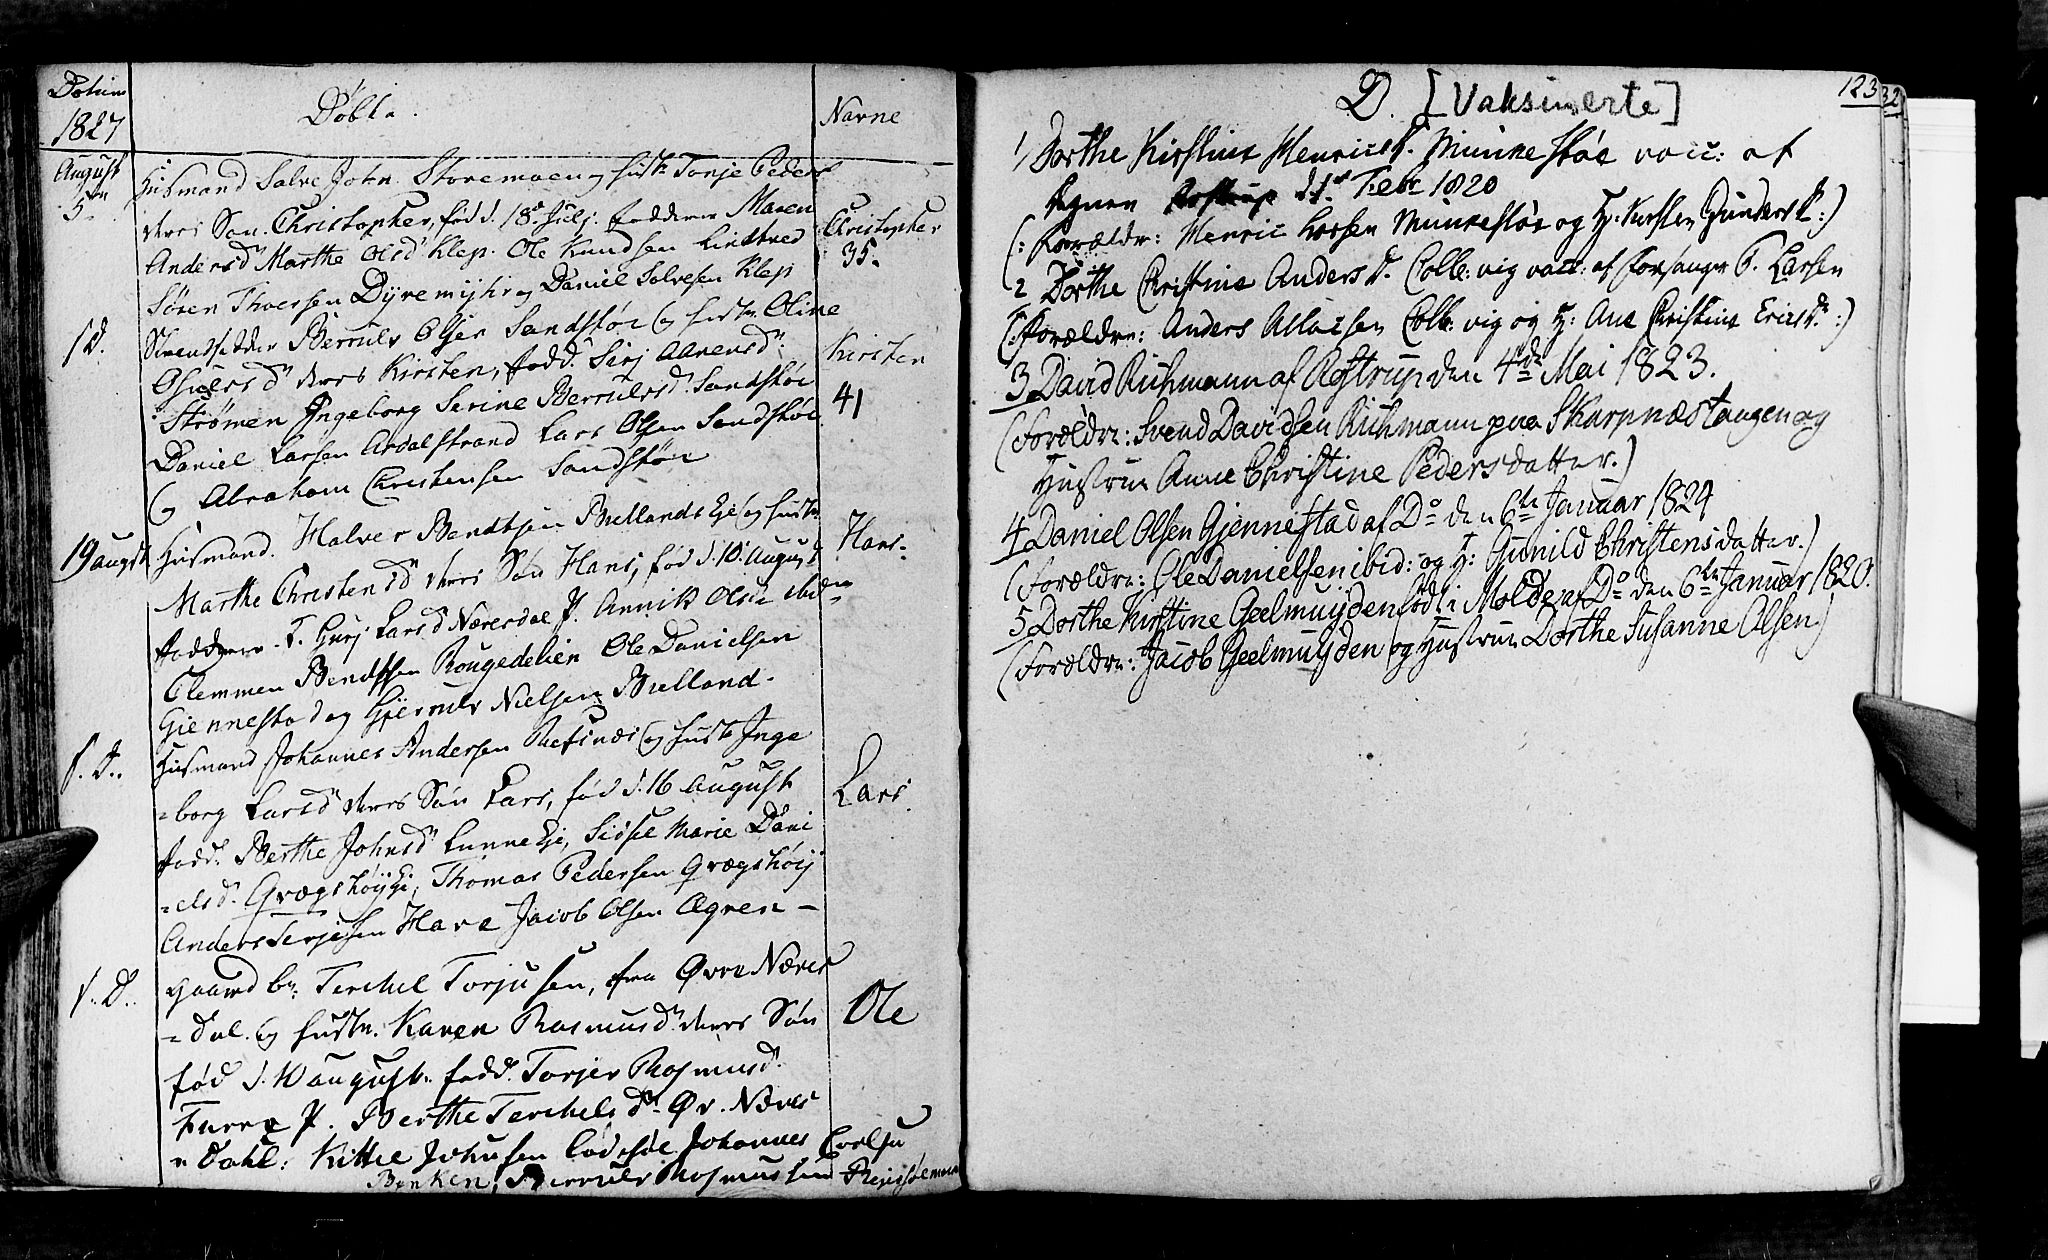 Datum
1827
Døbte.
Navne
August
5
Huusmand Salve John. Storemoen og hustr Tonje Peders
deres Søn Christopher, fød d. 18 Julj. fadderne Maren
Andersd Marthe Olsd Klep. Ole Knudsen Lindtved
Søren Thorsen Dyremyhr og Daniel Salvesen Klep
Christopher
35.
s d.
Berrulv Olsen Sandstøe og hustr Oline
deres Kirsten, fadd. Sirj Aanensd
Strømen Ingeborg Serine Berrulvsd. Sandstøe
Daniel Larsen Ardalstrand Lars Olsen Sandstøe
og Abraham Christensen Sandstøe
Kirsten
41
19 augst
Huusmand. Halvor Bendtsen Bellands Eje og hustr
Marthe Christensd deres Søn Hans, fød d. 10. August
fadderne. Gurj Larsd Næversdal P. Annik Olsd ibidem
Clemmen Bendtsen Rougedelien Ole Danielsen
Giennestad og Gjerrulv Nielsen Belland.
Hans
s. d..
Huusmand Johannes Andersen Refsnes og hustr Inge
=borg Larsd deres Søn Lars, fød d. 16 August
fadd. Berthe Johnsd Lunne Eje, Sidsel Marie Dani
=elsd. Grægshøy Ej, Thomas Pedersen Grægshøy
Anders Terjesen Have Jacob Olsen Ægren –
Lars
s. d..
Gaardbr. Terchel Torjusen, fra Øvre Næver
=dal og hustr. Karen Rasmusd. deres Søn
fød d. 10 august. fadd. Torjer Rasmusd.
Furre P. Berthe Terchelsd. Øv. Næver
=dahl: Kittel Johnsen Johannes
Berrulv Rasmussen
Ole
123
D. [Vaksinerte]
1/ Dorthe Kirstine Henricsd. Munkestøe vacc: af
Febr 1820
(: Forældre: Henric Larsen Munkestøe og H: Kirsten Gundersd. :)
2 Dorthe Christine Andersd. Colb:vig vacc: af Forsanger P. Larsen
(: Forældre: Anders Colb:vig og H: Ane Christine Ericsdr. :)
3 David Richmann af Rostrup den 4de Mai 1823.
(Forældre: Svend Davidsen Richmann paa Skarpnæstangen og
Hustrue Anne Christine Pedersdatter.)
4 Daniel Olsen Gjennestad af Do den 6te Januar 1824
(Forældre: Ole Danielsen ibid: og H: Gunild Christensdatter.)
5 Dorthe Kirstine Geelmuyden fød i Molde af Do den 6te Januar 1820.
(Forældre: Jacob Geelmuyden og Hustrue Dorthe Susanne Olsen)